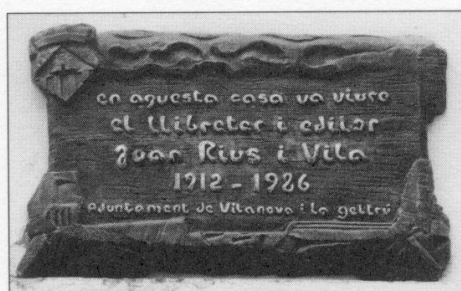 en aquesta casa va viure
el llibreter i editor
Joan Rius i Vila
1912 - 1986
ajuntament de Vilanova i la geltrú